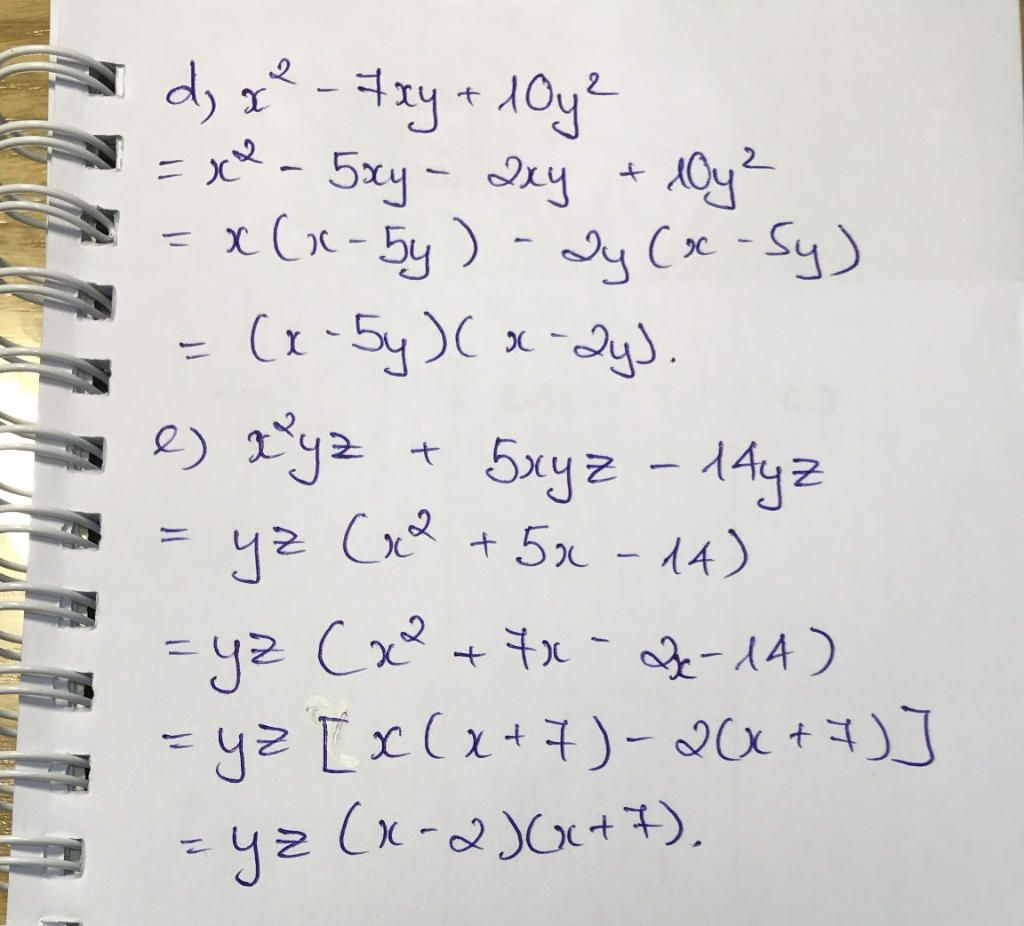 d, x² - 7xy + 10y²
= x² - 5xy - 2xy + 10y²
= x(x - 5y) - 2y(x - 5y)
= (x - 5y)(x - 2y).
e) x²yz + 5xyz - 14yz
= yz (x² + 5x - 14)
= yz (x² + 7x - 2x - 14)
= yz [x(x + 7) - 2(x + 7)]
= yz (x - 2)(x + 7).